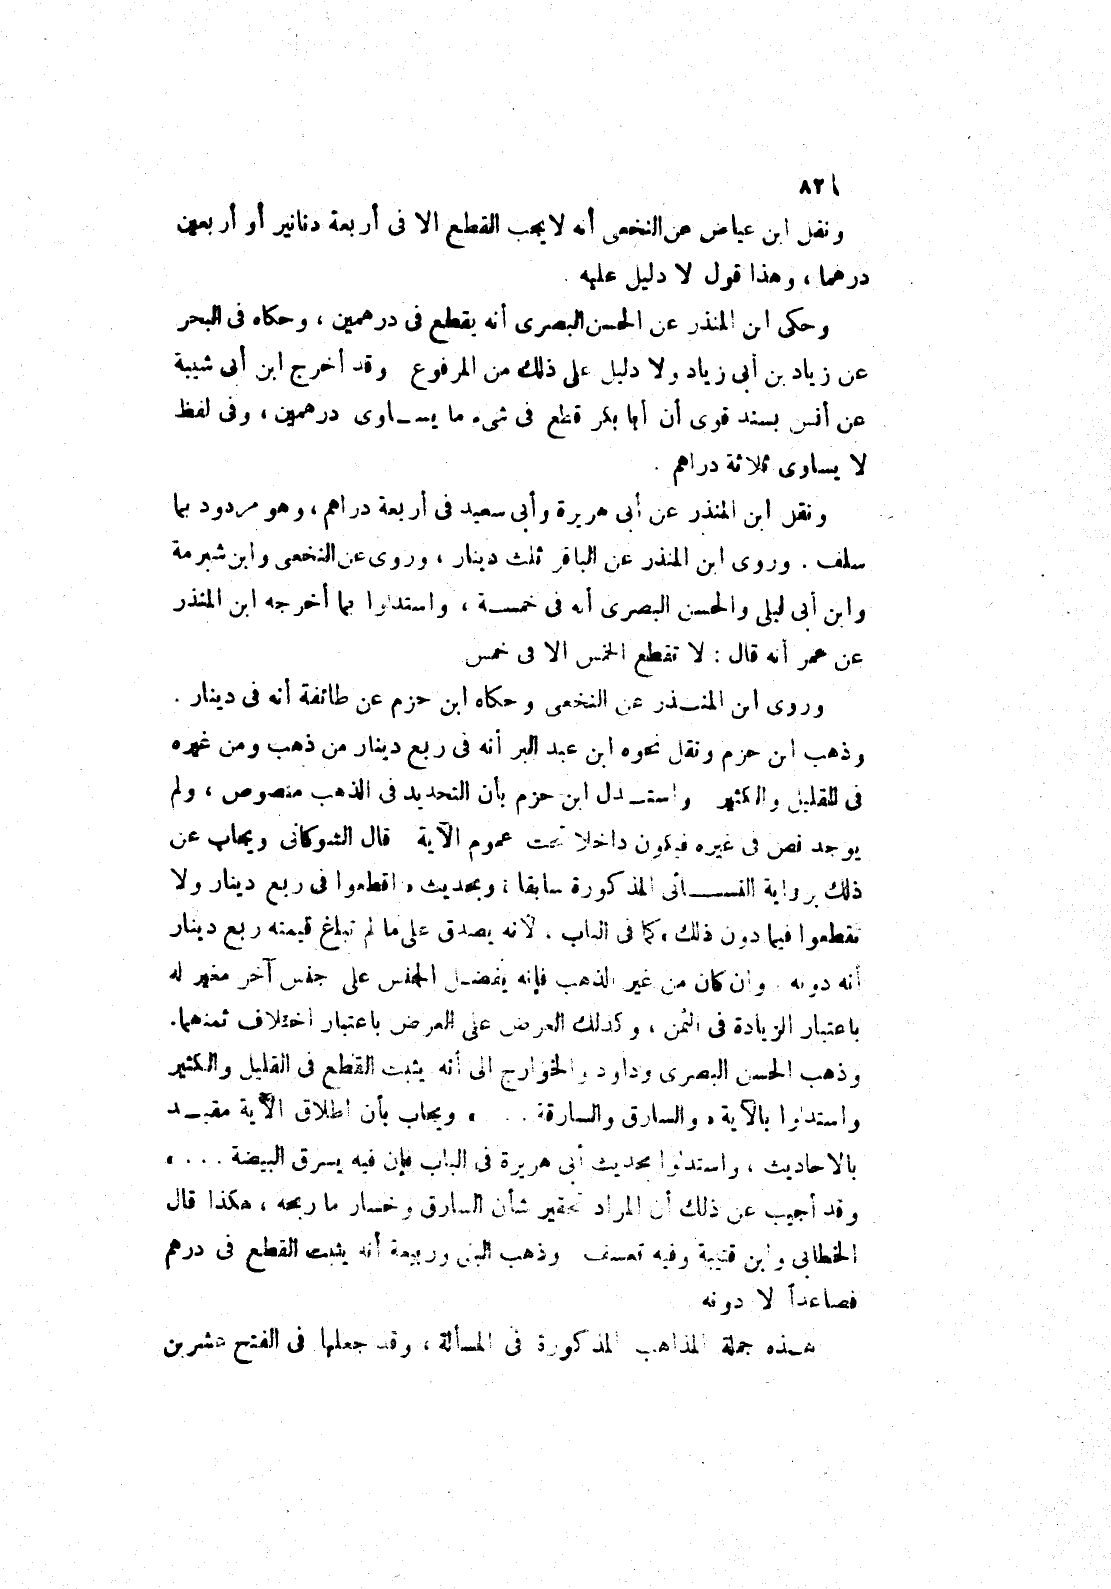 ٨٢١
ونقل ابن عياض عن النخعى أنه لايجب القطع الا فى أربعة دنانير أو أربعين
درهما ، وهذا قول لا دليل عليه .
وحكى ابن المنذر عن الحسن البصرى أنه يقطع فى درهمين ، وحكاه فى البحر
عن زياد بن أبى زياد ولا دليل على ذلك من المرفوع وقد أخرج ابن أبى شيبة
عن أنس بسند قوى أن أبا بكر قطع فى شىء ما يساوى درهمين ، وفى لفظ
لا يساوى ثلاثة دراهم .
ونقل ابن المنذر عن أبى هريرة وأبى سعيد فى أربعة دراهم ، وهو مردود بما
سلف . وروى ابن المنذر عن الباقر ثلث دينار ، وروى عن النخعى وابن شبرمة
وابن أبى ليلى والحسن البصرى أنه فى خمسة ، واستدلوا بما أخرجه ابن المنذر
عن عمر أنه قال : لا تقطع الخمس الا فى خمس
وروى ابن المنذر عن النخعى وحكاه ابن حزم عن طائفة أنه فى دينار .
وذهب ابن حزم ونقل نحوه ابن عبد البر أنه فى ربع دينار من ذهب ومن غيره
فى القليل والكثير واستدل ابن حزم بأن التحديد فى الذهب منصوص ، ولم
يوجد نص فى غيره فيكون داخلا تحت عموم الآية قال الشوكانى ويجاب عن
ذلك برواية النسائى المذكورة سابقا ، وبحديث « اقطعوا فى ربع دينار ولا
تقطعوا فيما دون ذلك » كما فى الباب ، لأنه يصدق على ما لم تبلغ قيمته ربع دينار
أنه دونه . وان كان من غير الذهب فإنه يفضل الجنس على جنس آخر مغير له
باعتبار الزيادة فى الثمن ، وكذلك العرض على العرض باعتبار اختلاف ثمنهما .
وذهب الحسن البصرى وداود والخوارج الى أنه يثبت القطع فى القليل والكثير
واستدلوا بالآية « والسارق والسارقة . . . » ويجاب بأن اطلاق الآية مقيد
بالاحاديث ، واستدلوا بحديث أبى هريرة فى الباب فإن فيه يسرق البيضة . . . »
وقد أجيب عن ذلك أن المراد تحقير شأن السارق وخسار ما ربحه ، هكذا قال
الخطابى وابن قتيبة وفيه تعسف وذهب البتى وربيعة أنه يثبت القطع فى درهم
فصاعداً لا دونه
هذه جملة المذاهب المذكورة فى المسألة ، وقد جعلها فى الفتح عشرين